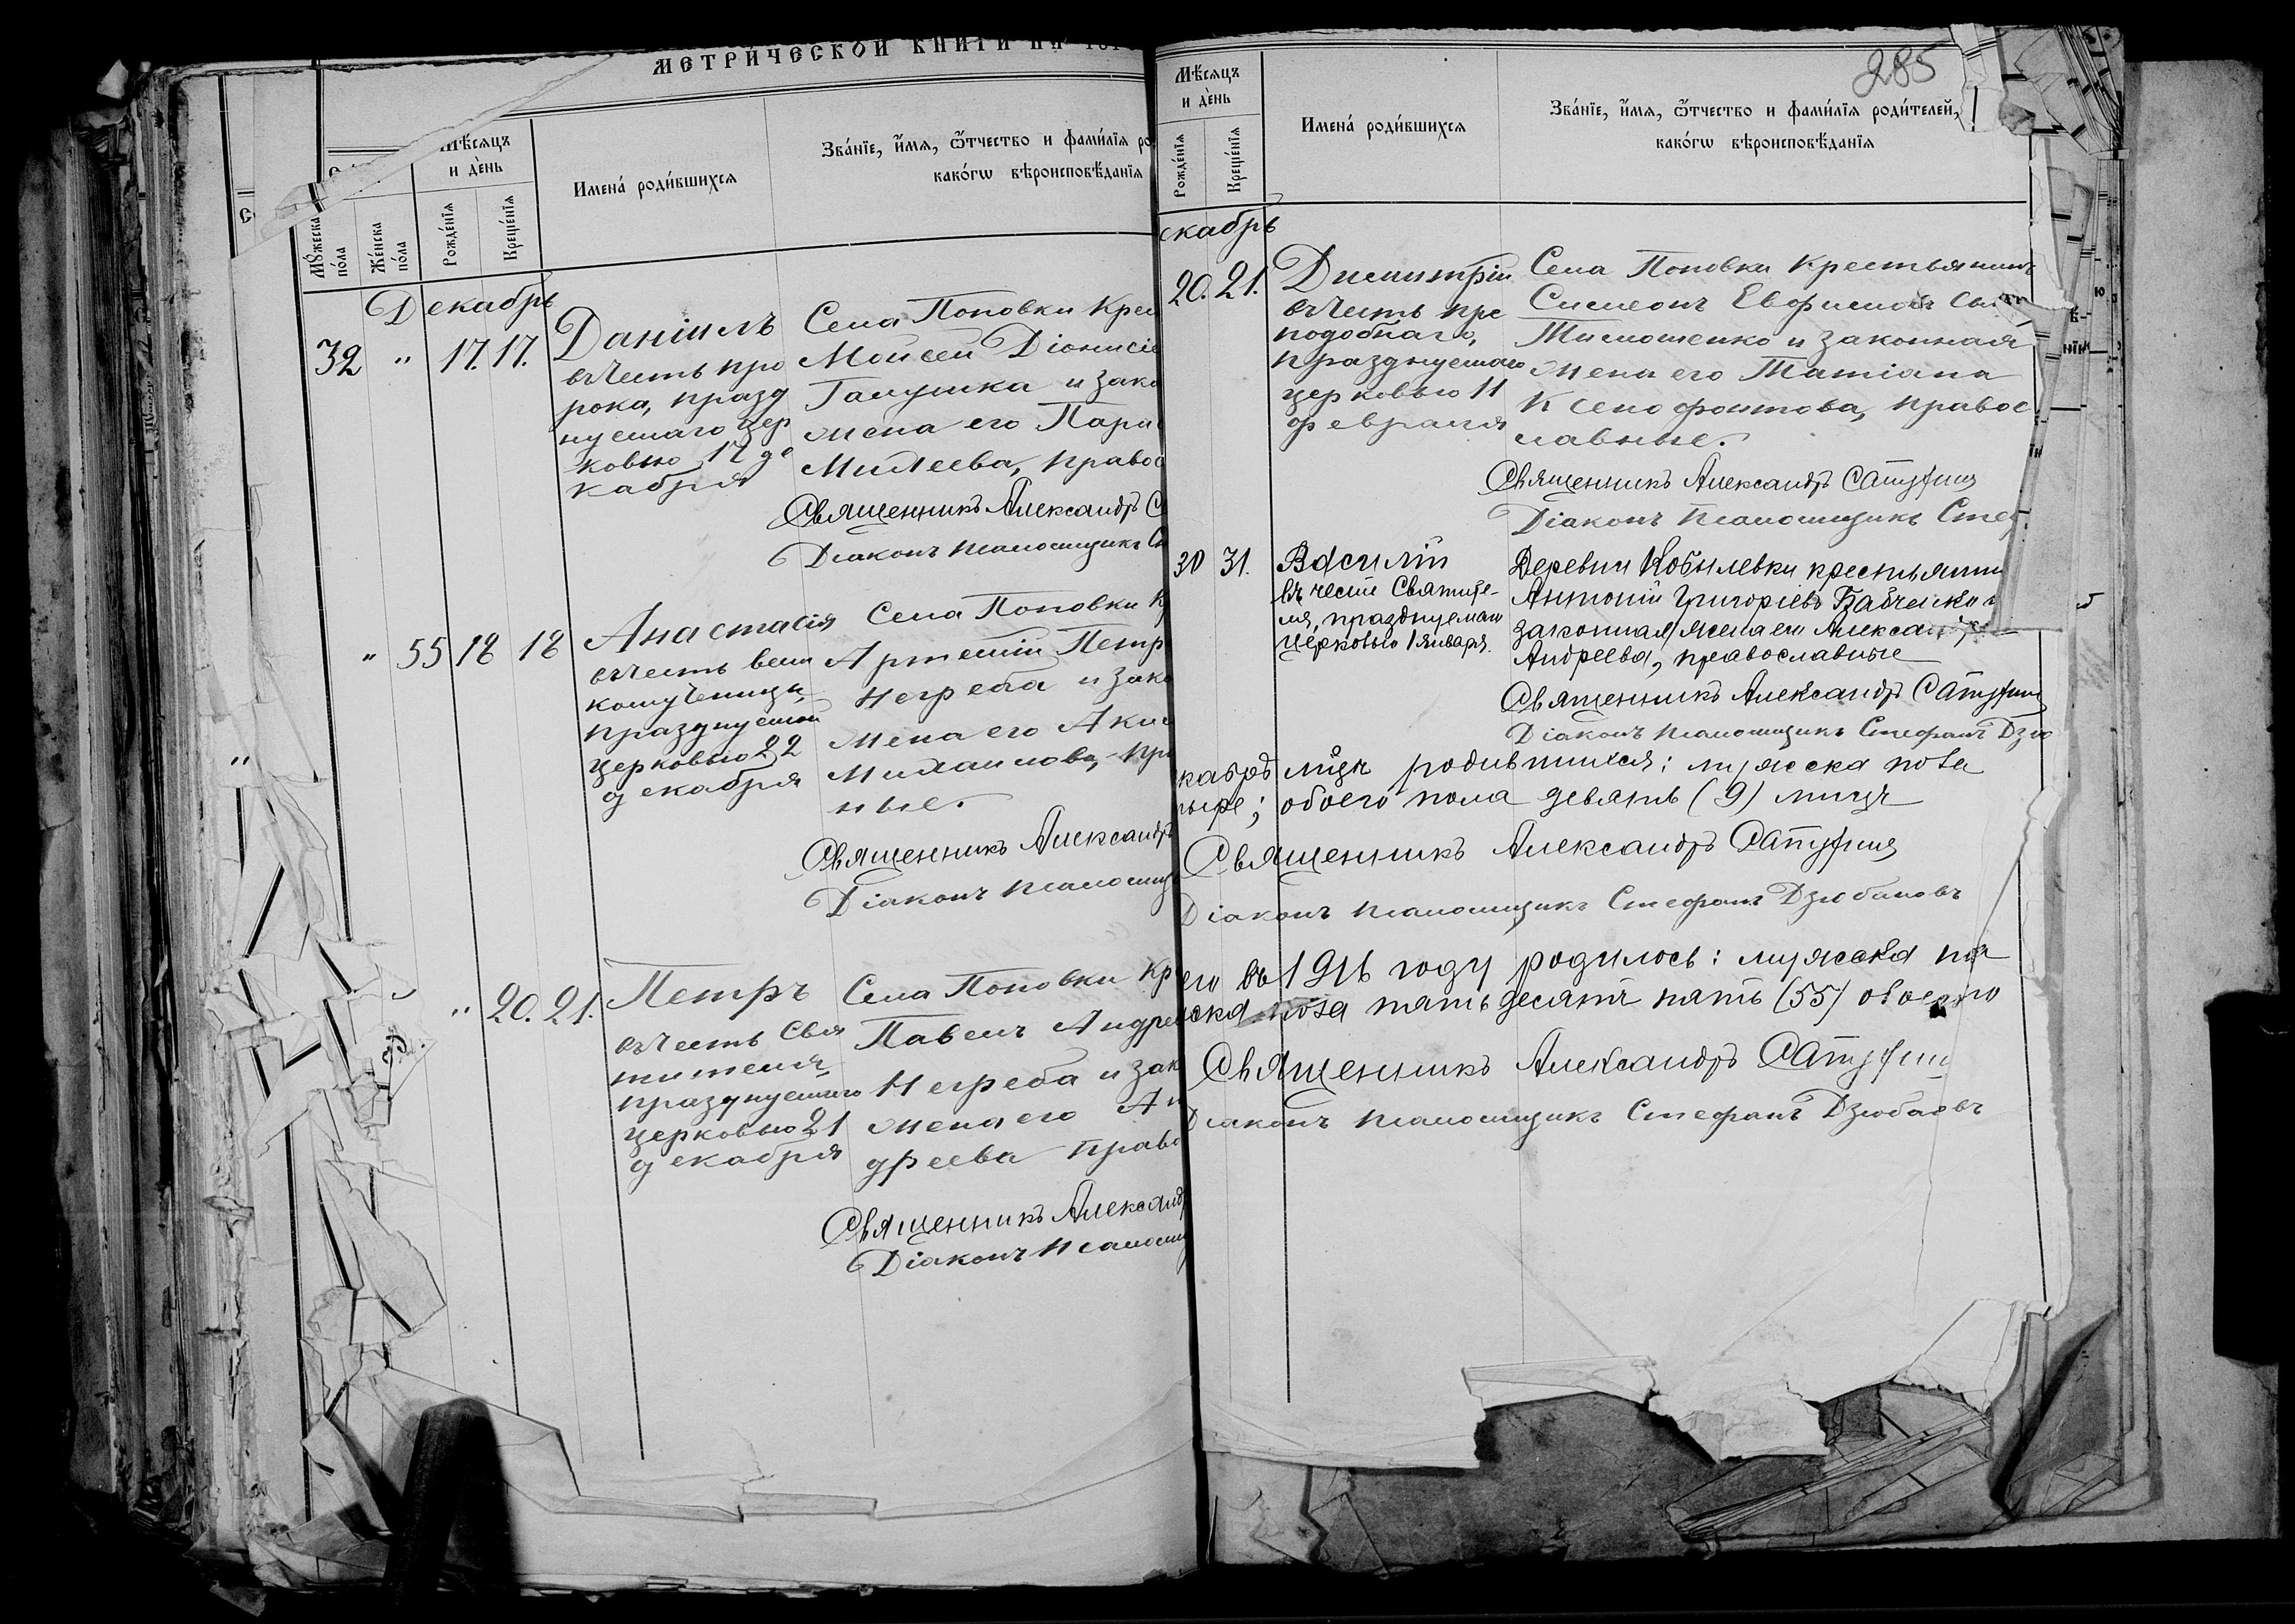 МЕТРИ́ЧЕСКОЙ КНИ́ГИ НА
Мѣ́сяцъ
и де́нь
Имена́ роди́вшихся
Зва́нїе, и҆́мя, ѻ҆́тчество и фами́лїя ро
како́гѡ вѣроисповѣ́данїя
Мꙋ́жеска
по́ла
Же́нска
по́ла
Рожде́нїя
Креще́нїя
Декабрь
32 " 17. 17. Данiилъ
въ честь про
рока, празд
нуемаго цер
ковью 17 де
кабря
Села Поповки Крес
Моисей Дiонисiе
Галушка и зако
жена его Пара
правос
Священникъ Александръ С
Дiаконъ псаломщикъ Ст
" 55 18 18 Анастасiя
въ честь вели
комученицы,
празднуемой
церковью 22
декабря
Села Поповки К
Артемiй Петр
Негреба и зако
жена его Аки
Михаилова, пра
ные.
Священникъ Александръ
Дiаконъ псаломщ
" 20. 21. Петръ
въ честь Свя
тителя,
празднуемаго
церковью 21
декабря
Села Поповки Кр
Павелъ Андре
Негреба и зак
жена его Ан
дреева право
Священникъ Александр
Дiаконъ псаломщ
285
Мѣ́сяцъ
и де́нь
Имена́ роди́вшихся
Зва́нїе, и҆́мя, ѻ҆́тчество и фами́лїя роди́телей,
како́гѡ вѣроисповѣ́данїя
Рожде́нїя
Креще́нїя
екабрь
20. 21. Димитрiй
въ честь пре
подобнаго,
празднуемаго
церковью 11
февраля
Села Поповки Крестьянинъ
Симеонъ Евфимовъ
Тимошенко и законная
жена его Татiана
Ксенофонтова, правос
лавные.
Священникъ Александръ
Дiаконъ псаломщикъ Стеф
30 31. Василiй
въ честь Святите-
ля, празднуемаго
церковью 1 января.
Деревни Кобылевки крестьянинъ
Антонiй Григорiевъ Бабченко и
законная жена его Александра
Андреева, православные
Священникъ Александръ
Дiаконъ псаломщикъ Стефанъ Дзю
кабрѣ мцѣ родившихся: мужска пола
тыре; обоего пола девять (9) лицъ
Священникъ Александръ
Дiаконъ псаломщикъ Стефанъ Дзюбановъ
его въ 1916 году родилось: мужска по
ска пола пятьдесятъ пять (55) обоего
Священникъ Александръ
Дiаконъ псаломщикъ Стефанъ Дзюбановъ